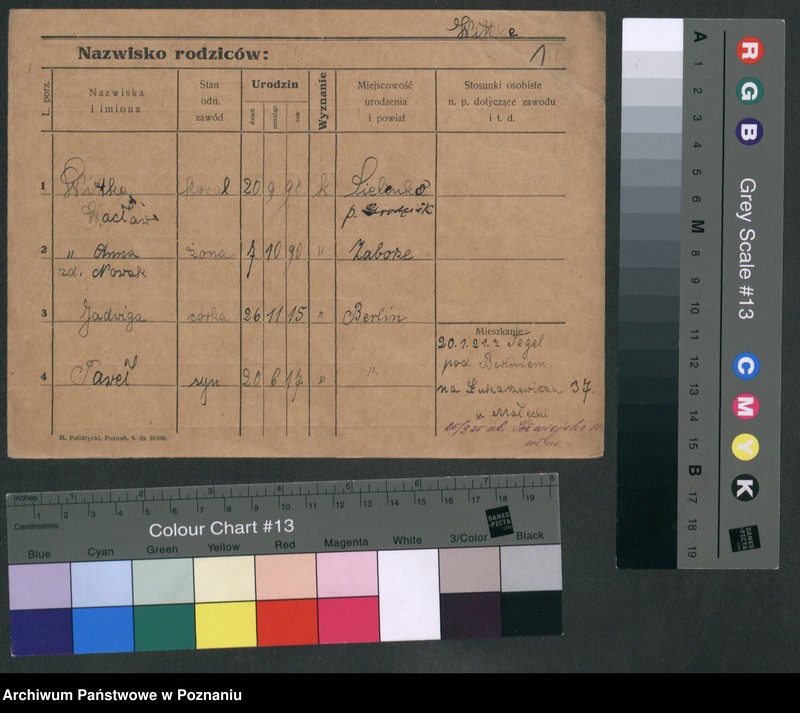 Wittke
Nazwisko rodziców:
1
L. porz.
Nazwiska
i imiona
Stan
odn.
zawód
Urodzin
dzień
miesiąc
rok
Wyznanie
Miejscowość
urodzenia
i powiat
Stosunki osobiste
n. p. dotyczące zawodu
i t. d.
1 Wittke kowal 20 9 90. k
Wacław p.
2 " Anna żona 4 10 90 " Zaborze
zd. Nowak
3 Jadwiga córka 26 11 15 " Berlin
Mieszkanie:
20.1.21. z Tegel
pod Berlinem
4 Paweł syn 20 6 17 " "
na Łukaszewicza 37.
u Małecki
M. Putiatycki, Poznań.
Inches 1 2 3 4 5 6 7 8
1 2 3 4 5 6 7 8 9 10 11 12 13 14 15 16 17 18 19
Centimetres
Colour Chart #13
DANES
PICTA
.COM
Blue Cyan Green Yellow Red Magenta White 3/Color Black
R G B
Grey Scale #13
C M Y K
DANES
PICTA
.COM
A 1 2 3 4 5 6 M 8 9 10 11 12 13 14 15 B 17 18 19
Archiwum Państwowe w Poznaniu